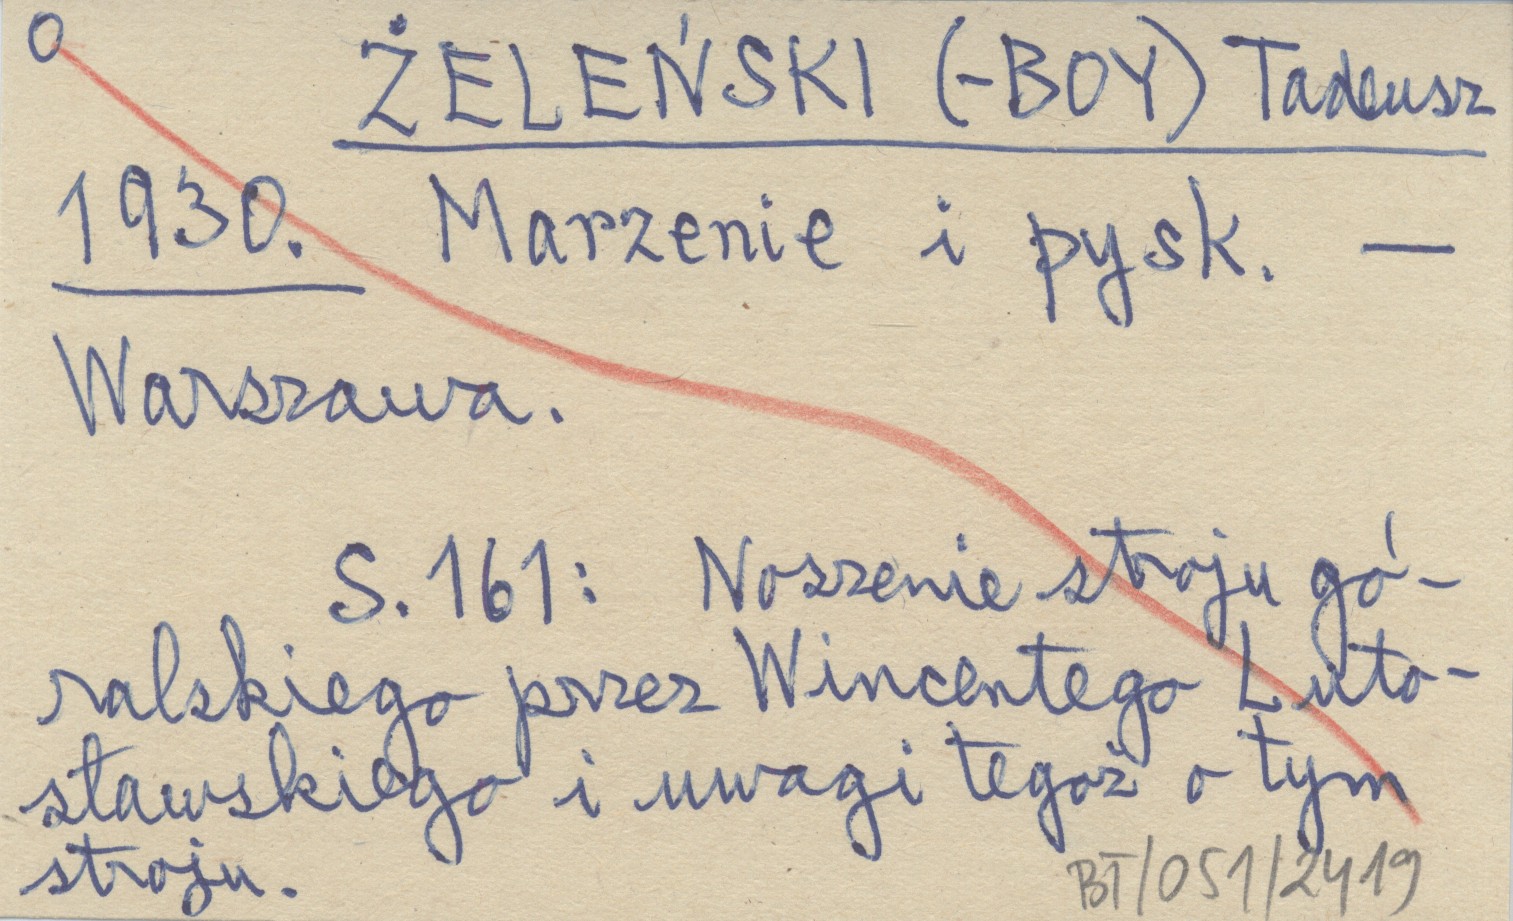 O
ŻELEŃSKI (-BOY) Tadeusz
1930. Marzenie i pysk. —
Warszawa.
S. 161: Noszenie stroju gó-
ralskiego przez Wincentego Luto-
sławskiego i uwagi tegoż o tym
stroju.
BT/051/2419